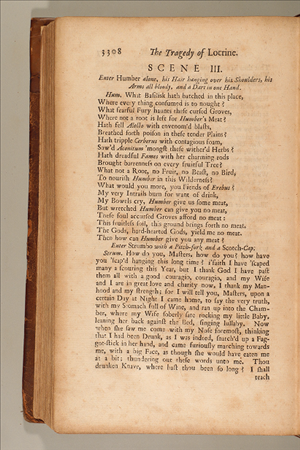 3308 The Tragedy of Locrine.
SCENE III.
Enter Humber alone, his Hair hanging over his Shoulders, his
Arms all bloody, and a Dart in one Hand.
Hum. What Basilisk hath hatched in this place,
Where every thing consumed is to nought?
What fearful Fury haunts these cursed Groves,
Where not a root is left for Humber's Meat?
Hath fell Alecto with envenom'd blasts,
Breathed forth poison in these tender Plains?
Hath tripple Cerberus with contagious foam,
Sow'd Aconitum 'mongst these wither'd Herbs?
Hath dreadful Fames with her charming rods
Brought barrenness on every fruitful Tree?
What not a Root, no Fruit, no Beast, no Bird,
To nourish Humber in this Wilderness?
What would you more, you Fiends of Erebus?
My very Intrails burn for want of drink,
My Bowels cry, Humber give us some meat,
But wretched Humber can give you no meat,
These foul accursed Groves afford no meat:
This fruitless soil, this ground brings forth no meat.
The Gods, hard-hearted Gods, yield me no meat.
Then how can Humber give you any meat?
Enter Strumbo with a Pitch-fork, and a Scotch-Cap.
Strum. How do you, Masters, how do you? how have
you 'scap'd hanging this long time? i'faith I have 'scaped
many a scouring this Year, but I thank God I have past
them all with a good couragio, couragio, and my Wife
and I are in great love and charity now, I thank my Man-
hood and my strength: for I will tell you, Masters, upon a
certain Day at Night I came home, to say the very truth,
with my Stomach full of Wine, and ran up into the Cham-
ber, where my Wife soberly sate rocking my little Baby,
leaning her back against the Bed, singing lullaby. Now
when she saw me come with my Nose foremost, thinking
that I had been Drunk, as I was indeed, snatch'd up a Fag-
got-stick in her hand, and came furiously marching towards
me, with a big Face, as though she would have eaten me
at a bit; thundering out these words unto me. Thou
drunken Knave, where hast thou been so long? I shall
teach